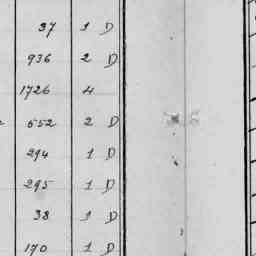 37 1 D
936 2 D
1726 4
652 2 D
294 1 D
295 1 D
38 1 D
170 1 D